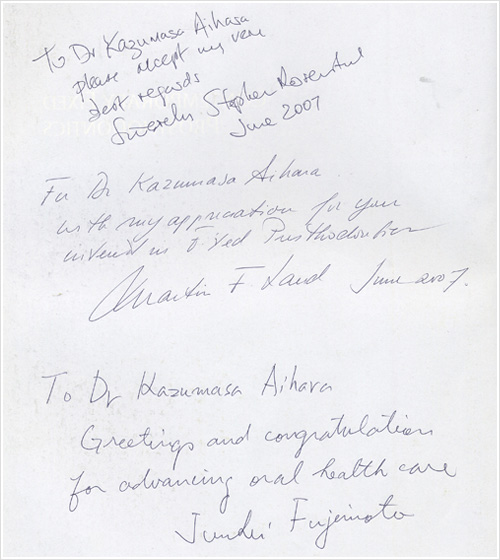 To Dr Kazumasa Aihara
please accept my very
best regards
Sincerely Stephen Rosenstiel
June 2007
For Dr Kazumasa Aihara
with my appreciation for your
interest in Fixed Prosthodontics
Martin F Land June 2007.
To Dr Kazumasa Aihara
Greetings and congratulation
for advancing oral health care
Junhei Fujimoto